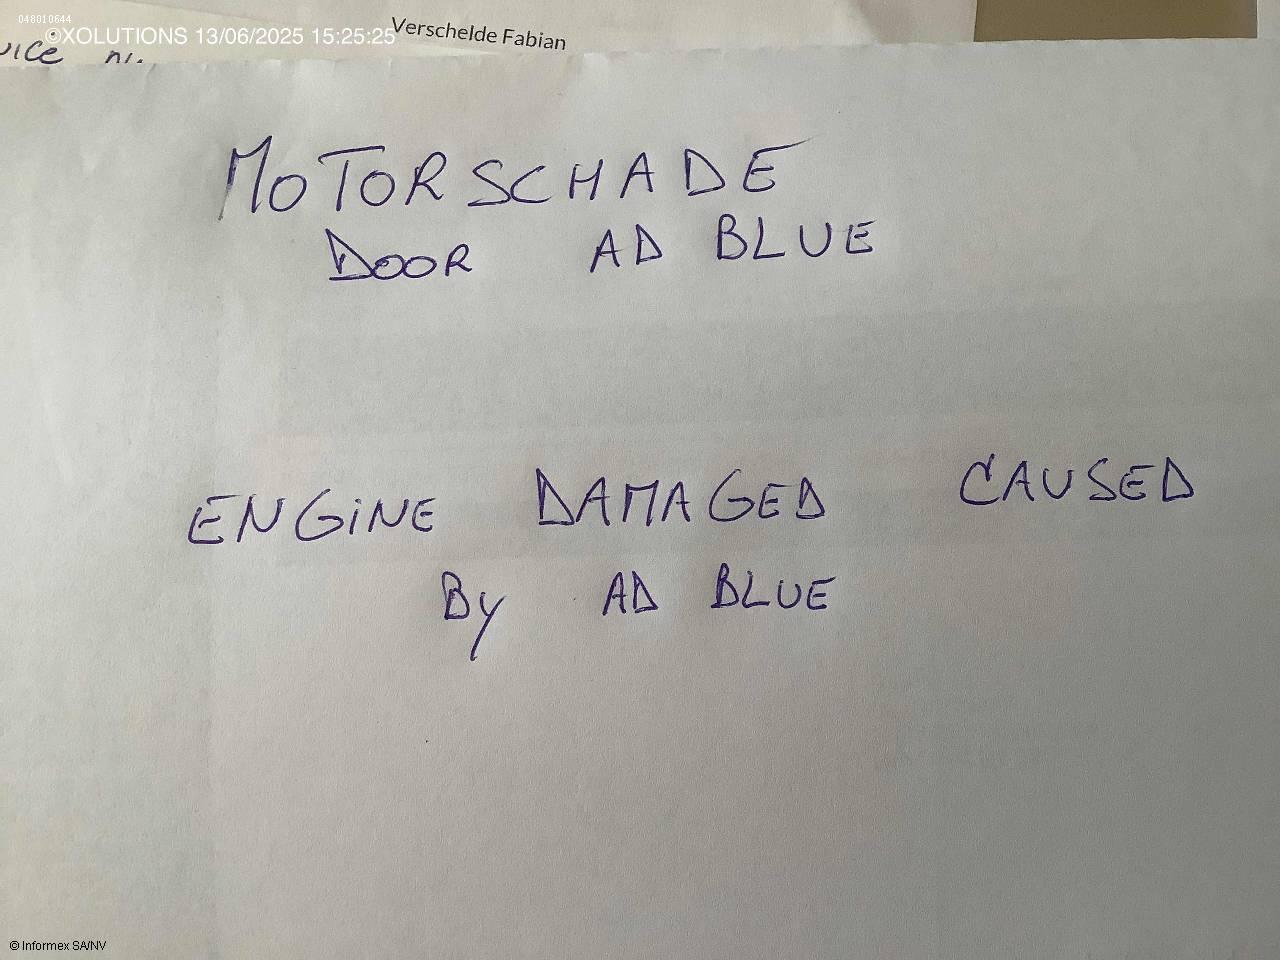 048010644
©XOLUTIONS 13/06/2025 15:25:25
Verschelde Fabian
MOTORSCHADE
DOOR AD BLUE
ENGINE DAMAGED CAUSED
By AD BLUE
© Informex SA/NV